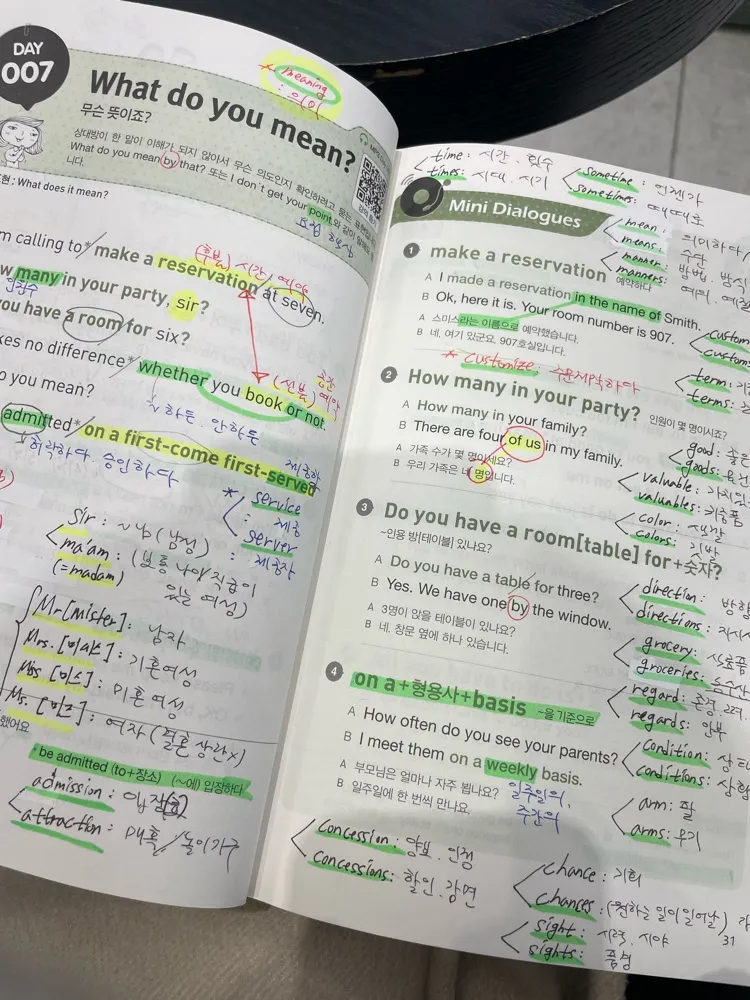 DAY
007
* meaning
: 의미
What do you mean?
무슨 뜻이죠?
상대방이 한 말이 이해가 되지 않아서 무슨 의도인지 확인하려고 묻는
What do you mean by that? 또는 I don't get your point.와 같이 말해도
니다.
요점
현 : What does it mean?
m calling to* make a reservation at seven.
(후불) 시간/예약
w many in your party, sir?
인원수
ou have a room for six?
kes no difference* whether you book or not.
(선불) 예약
o you mean?
~하든. 안하든
admitted* on a first-come first-served
허락하다. 승인하다
* service
: 제공
server
: 제공자
Sir : ~님 (남성)
ma'am : (보통 나이/직급이
(=madam)
있는 여성)
Mr[mister] : 남자
Mrs. [미시스] : 기혼여성
Miss [미스] : 미혼여성
Ms. [미즈] : 여자 (결혼상관x)
했어요
· be admitted (to+장소) (~에) 입장하다
admission : 입장(료)
attraction : 매혹/놀이기구
time : 시간. 횟수
times : 시대. 시기
sometime : 언젠가
sometimes : 때때로
Mini Dialogues
mean : 의미하다/
means : 수단
manner : 방법. 방식
manners : 예의.
1 make a reservation 예약하다
A I made a reservation in the name of Smith.
B Ok, here it is. Your room number is 907.
A 스미스라는 이름으로 예약했습니다.
B 네, 여기 있군요. 907호실입니다.
custom
custom
* customize : 주문제작하다
term :
terms :
2 How many in your party? 인원이 몇 명이시죠?
A How many in your family?
B There are four of us in my family.
A 가족 수가 몇 명이세요?
B 우리 가족은 네 명입니다.
good : 좋은
goods : 물건
valuable : 가치있
valuables : 귀중품
color : 색깔
colors : 깃발
3 Do you have a room[table] for+숫자?
~인용 방[테이블] 있나요?
A Do you have a table for three?
B Yes. We have one by the window.
A 3명이 앉을 테이블이 있나요?
B 네. 창문 옆에 하나 있습니다.
direction : 방향
directions : 지시
grocery : 식료품
groceries :
regard : 존경.
regards : 안부
4 on a+형용사+basis ~을 기준으로
A How often do you see your parents?
B I meet them on a weekly basis.
A 부모님은 얼마나 자주 뵙나요?
B 일주일에 한 번씩 만나요.
일주일의,
주간의
condition : 상태
conditions : 상황
arm : 팔
arms : 무기
concession : 양보. 인정
concessions : 할인. 감면
chance : 기회
chances : (원하는 일이 일어날) 가
sight : 시력. 시야
sights : 풍경
31